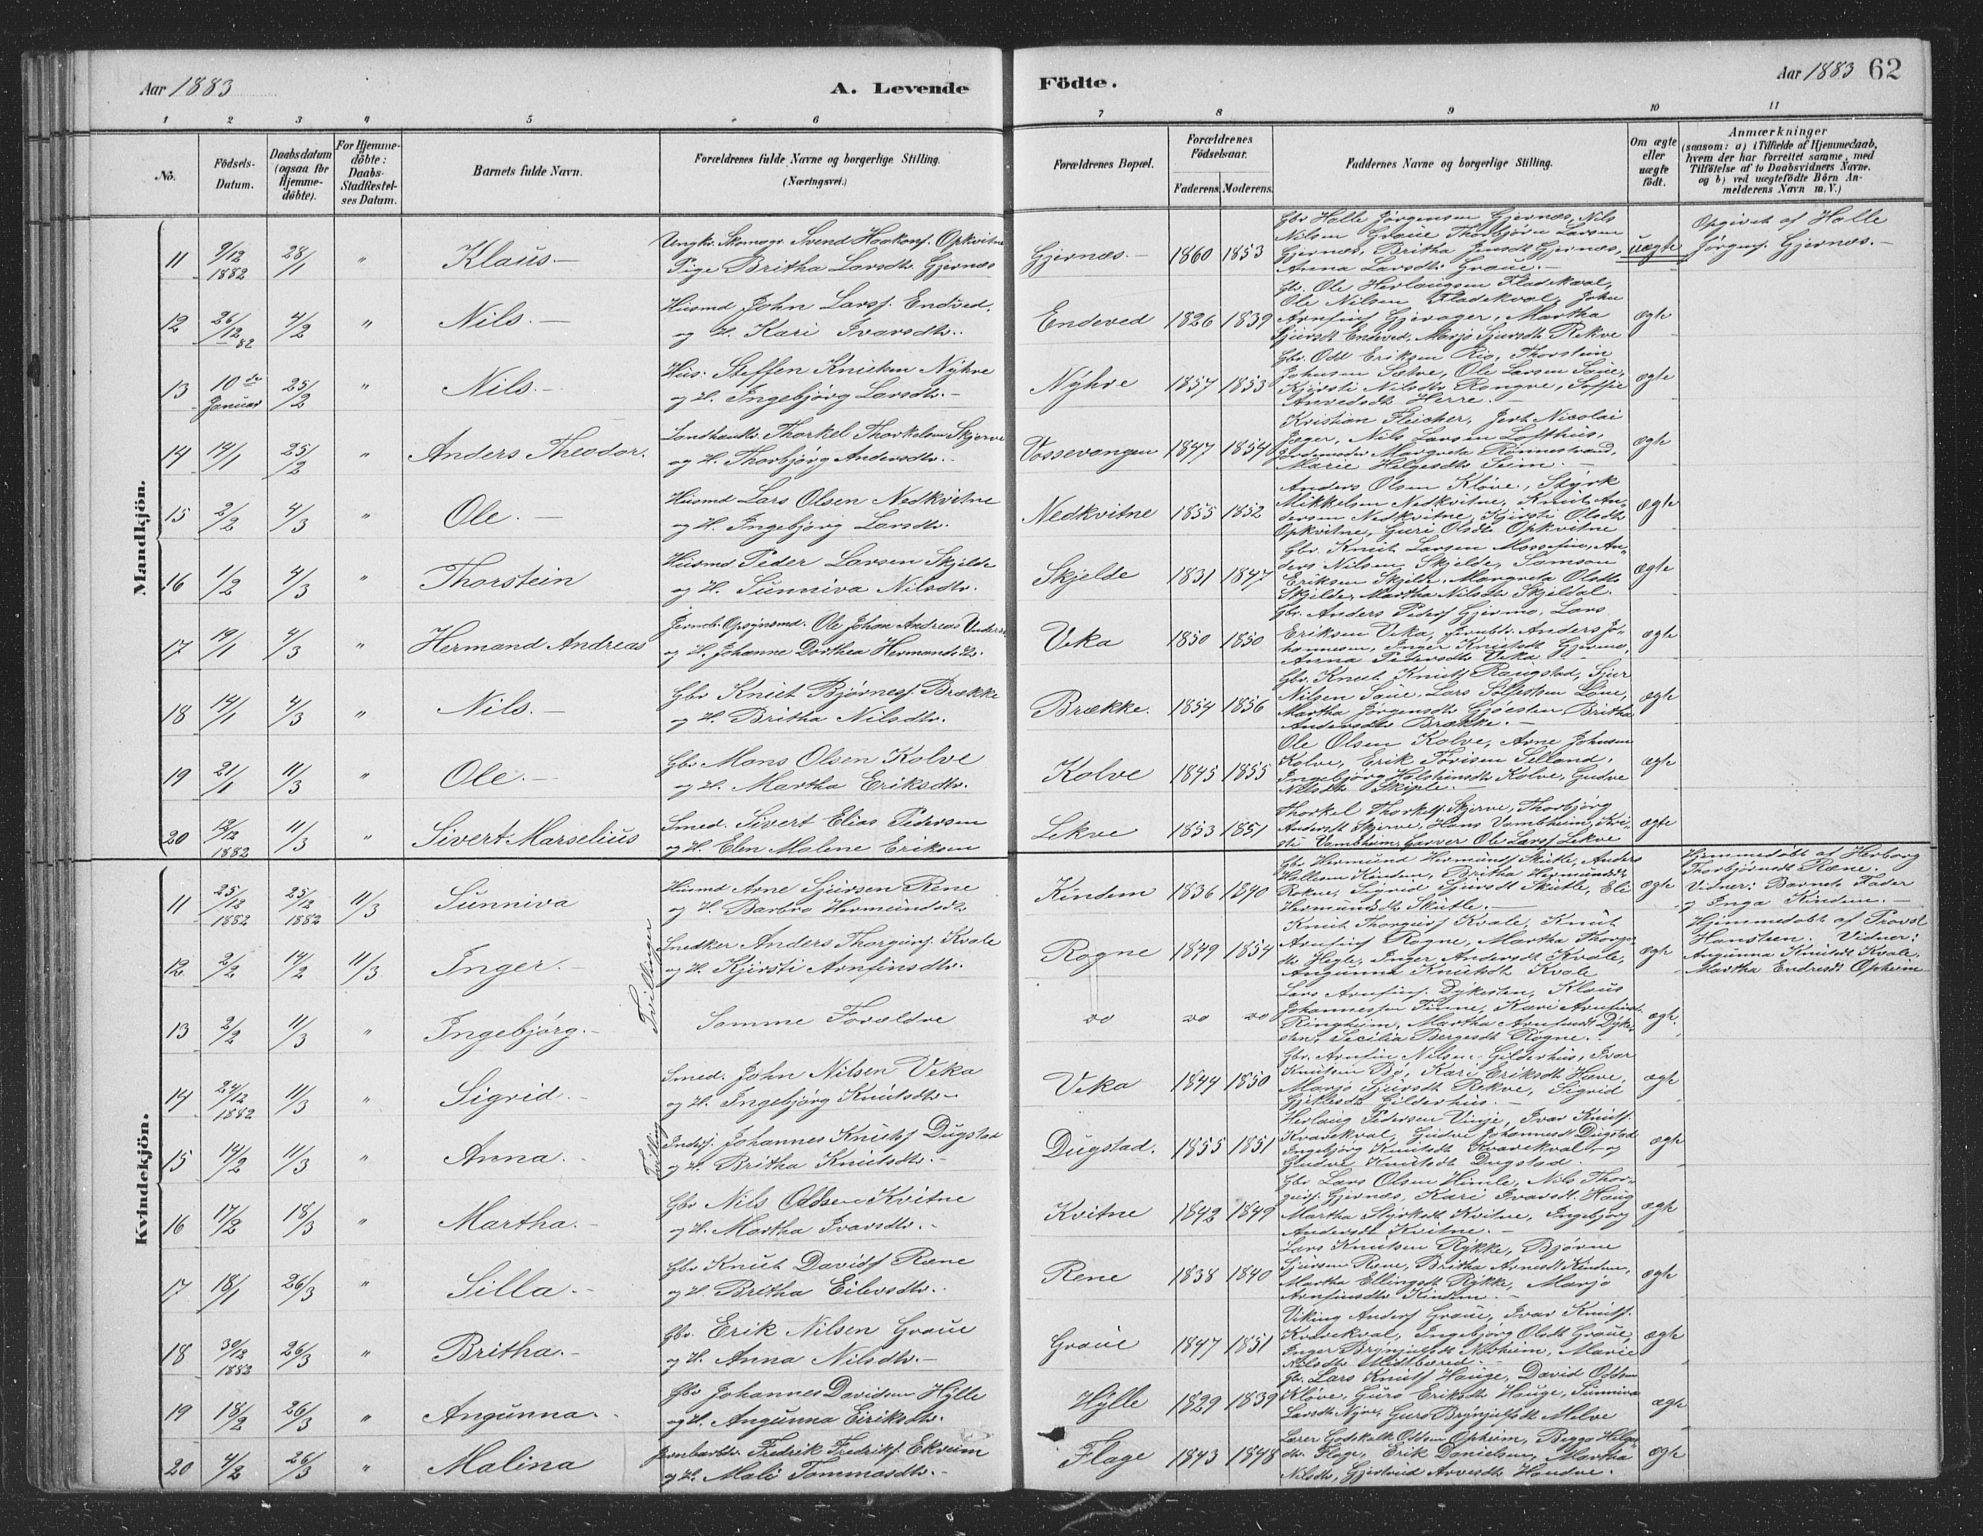 Aar 1883 A. Levende Födte. Aar 1883 62
1 2 3 4 5 6 7 8 9 10 11
No. Födsels-Datum. Daabsdatum (ogsaa for Hjemme-döbte). For Hjemme-döbte: Daabs-Stadfæstel-ses Datum. Barnets fulde Navn. Forældrenes fulde Navne og borgerlige Stilling. (Næringsvei.) Forældrenes Bopæl. Forældrenes Födselsaar. Faderens. Moderens. Faddernes Navne og borgerlige Stilling. Om ægte eller uægte födt. Anmærkninger (saasom: a) i Tilfælde af Hjemmedaab, hvem der har forrettet samme, med Tilföielse af to Daabsvidners Navne. og b) ved uægtefödte Börn An-melderens Navn m. V.)
Mandkjön.
11 9/12 1882 28/1 " Klaus.— Ungkr. Skomagr. Svend Haakons. Opkvitne
Pige Britha Larsdtr. Gjernæs Gjernæs.— 1860 1853 Gbr Halle Jørgensen Gjernæs, Nils
Nilsen Graue Thorbjørn Larsen
Gjernæs, Britha Jensdt Gjernæs,
Anna Larsdtr Graue.— uægte Opgivet af Halle
Jørgens. Gjernæs.—
12 26/12 82 4/2 " Nils.— Husmd John Larss. Endved.
og H. Kari Ivarsdtr. Endeved 1826 1839 Gbr. Ole Herlaugsen Fladekval,
Ole Nilsen Fladekval, John
Arnfins Gjerager, Martha
Sjursdt Endeved, Marjo Sjursdt Rekve ægte
13 10de Januar 25/2 " Nils.— Hus: Steffen Knutsen Nyhre
og H. Ingebjørg Larsdtr.— Nyhre 1857 1853 Gbr. Odd Eriksen Rio, Thorstein
Johnsen Sætre, Ole Larsen Saue,
Kjersti Nilsdt Rongve, Soffie
Anvedsdt Herre.— ægte
14 14/1 25/2 " Anders Theodor. Landhandlr. Thorkel Thorkelsen Skjerve
og H. Thorbjørg Andersdtr.— Vossevangen 1847 1854 Kristian Fleicher, Nicolai
Jæger, Nils Larsen Lofthus,
Jordemoder Margreta Rønnestrand,
Marie Helgesdt Seim.— ægte
15 2/2 4/3 " Ole.— Husmd Lars Olsen Nedkvitne
og H. Ingebjørg Larsdtr. Nedkvitne 1855 1852 Anders Olsen Kløve, Styrk
Mikkelsen Nedkvitne, Knut An-
dersen Nedkvitne, Kjersti Olsdt
Opkvitne, Guri Olsdt Opkvitne ægte
16 1/2 4/3 " Thorstein Husmd Peder Larsen Skjelde
og H. Sunniva Nilsdtr. Skjelde 1831 1847 Gbr. Knut Larsen Mossefin, An-
ders Nilsen Skjelde, Samson
Eriksen Skjelde, Margreta Olsdt
Skjelde, Martha Nilsdt Skjeldal. ægte
17 19/1 4/3 " Hermand Andreas Jernb. Opsynsmd. Ole Johan Andreas
og H. Johanne Dorthea Hermandsdtr. Veka 1850 1850 Gbr. Anders Peders Gjermo, Lars
Eriksen Veka, Anders Jo-
hannesen, Inger Knutsdt Gjermo,
Anna Pedersdt Veka.— ægte
18 14/1 4/3 " Nils.— Gbr Knut Bjørness. Brække
og H. Britha Nilsdtr. Brække. 1854 1856 Gbr. Knut Knuts Raugstad, Sjur
Nilsen Saue, Lars Solfestsen Løne,
Martha Jørgensdt Gjøesten, Britha
Andersdt Brække.— ægte
19 21/1 11/3 " Ole.— Gbr Mons Olsen Kolve
og H. Martha Eriksdtr. Kolve 1845 1855 Ole Olsen Kolve, Arne Johnsen
Kolve, Erik Torisen Selland,
Ingebjørg Holsteinsdt Kolve, Gudve
Nilsdt Skiple.— ægte
20 12/12 1882 11/3 " Sivert Marselius Smed. Sivert Elias Pedersen
og H. Elen Malene Eriksen Lekve 1853 1851 Thorkel Thorkels. Skjerve, Thorbjørg
Andersdt Skjerve, Hans Vambheim, Kri-
sti Vambheim, Garver Ole Larss Lekve ægte
Kvindekjön.
11 25/12 1882 25/12 1882 11/3 Sunniva Husmd Arne Sjursen Rene
og H. Barbro Hermundsdtr. Kindem 1836 1840 Gbr Hermund Hermunds Skutle, Anders
Hallesen Kindem, Britha Hermundsdt
Rokne, Sigrid Sjursdt Skutle, Eli
Hermundsdt Skutle.— ægte Hjemmedøbt af Herborg
Thorbjørnsdt Ræne.
Vidner: Barnets Fader
og Inga Kindem.—
12 2/2 14/2 11/3 Inger.— Tvillinger Snedker Anders Thorguns. Kvale
og H. Kjersti Arnfinsdtr. Rogne 1849 1854 Knut Thorguns Kvale, Knut
Arnfins Rogne, Martha Thorgs-
dtr. Hegle, Inger Andersdt Kvale,
Angunna Knutsdt Kvale ægte Hjemmedøbt af Provst
Hansteen. Vidner:
Angunna Knutsdt Kvale,
Martha Endresdt Opheim
13 2/2 11/3 " Ingebjørg.— Samme Forældre do do do Lars Arnfins. Dykesten, Klaus
Johannessen Finne, Kari Arnfinsdt.
Ringheim, Martha Arnfinsdt Dyke-
sten, Secilia Bergesdt Rogne. ægte.
14 24/12 1882 11/3 " Sigrid.— Smed. John Nilsen Veka
og H. Ingebjørg Knutsdtr.— Veka 1844 1850 Gbr. Arnfin Nilsen Gilderhus, Ivar
Knutsen Bø, Kari Eriksdt Hæve,
Marjo Sjursdt Rekve, Sigrid
Gjitlesdt Gilderhus.— ægte
15 14/2 11/3 " Anna.— Tvilling Inders. Johannes Knuts Dugstad
og H. Britha Knutsdtr.— Dugstad. 1855 1851 Herlaug Pedersen Vinje, Ivar Knuts.
Kvarekval, Gudve Johannesdt Dugstad
Ingebjørg Knutsdt Kvarekval, og
Gudve Knutsdt Dugstad. ægte
16 17/2 18/3 " Martha.— Gbr Nils Oddsen Kvitne
og H. Martha Ivarsdtr.— Kvitne 1842 1849 Gbr Lars Olsen Himle, Nils Thor-
guns. Gjernæs, Kari Ivarsdt Haug
Martha Styrksdt Kvitne, Ingebjørg
Andersdt Kvitne. ægte
17 18/1 26/3 " Silla.— Gbr Knut Davids Ræne
og H. Britha Eilevsdtr. Rene 1838 1840 Lars Knutsen Rykke, Bjørne
Sjursen Ræne, Britha Arnesdt Kindem,
Martha Ellingsdt Rykke, Marjo
Arnfinsdtr Kindem.— ægte
18 30/12 1882 26/3 " Britha.— Gbr. Erik Nilsen Graue
og H. Anna Nilsdtr.— Graue 1847 1851 Viking Anders Graue, Ivar Knuts.
Kvarekval, Ingebjørg Olsdt Graue,
Inger Brynjulfsdt Nesheim, Marie
Nilsdtr Midtbøred.— ægte
19 18/2 26/3 " Angunna.— Gbr Johannes Davidsen Hylle
og H. Angunna Eiriksdtr. Hylle 1829 1839 Gbr. Lars Knuts Hauge, David Oddsen
Kløve, Guro Eriksdt Hauge, Sunniva
Larsdt Nyre, Guro Brynjulfsdt Mølve ægte
20 4/2 26/3 " Malina Jernbarbr. Fredrik Fredriks. Ekreim
og H. Mali Tommasdtr.— Flage 1843 1848 Lærer Godskalk Oddsen Opheim, Helge-
dtr. Flage, Erik Danielsen, Martha
Nilsdtr, Gjertrud Arvesdt Handve. ægte